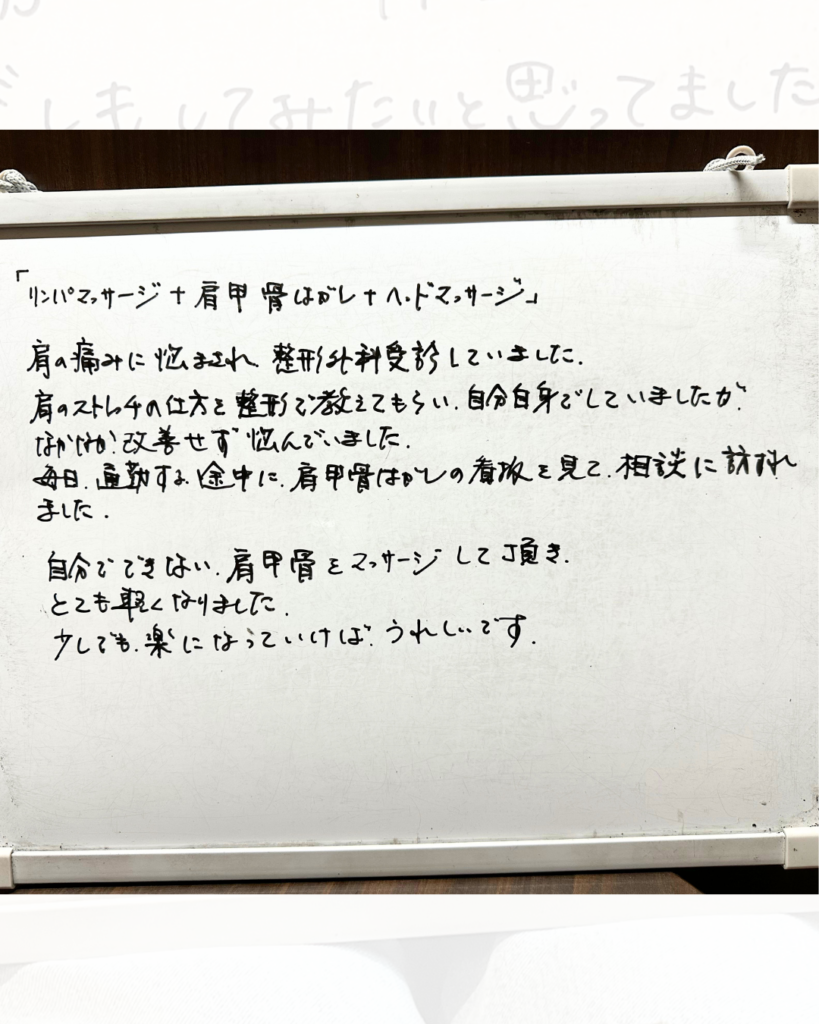 しもしてみたいと思ってました
「リンパマッサージ+肩甲骨はがし+ヘッドマッサージ」
肩の痛みに悩まされ、整形外科受診していました。
肩のストレッチの仕方を整形で教えてもらい、自分自身でしていましたが、
なかなか改善せず悩んでいました。
毎日、通勤する途中に、肩甲骨はがしの看板を見て、相談に訪ずれ
ました。
自分でできない、肩甲骨をマッサージして頂き、
とても軽くなりました。
少しでも、楽になっていけば、うれしいです。